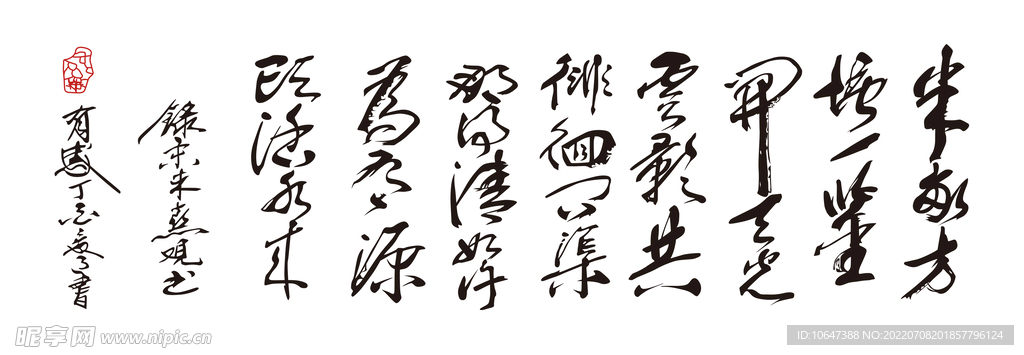 半畝方
塘一鑒
開天光
雲影共
徘徊问渠
那得清如许
為有源
頭活水来
録宋朱熹观书
有感丁書
昵享网 www.nipic.cn
ID:10647388 NO:20220708201857796124